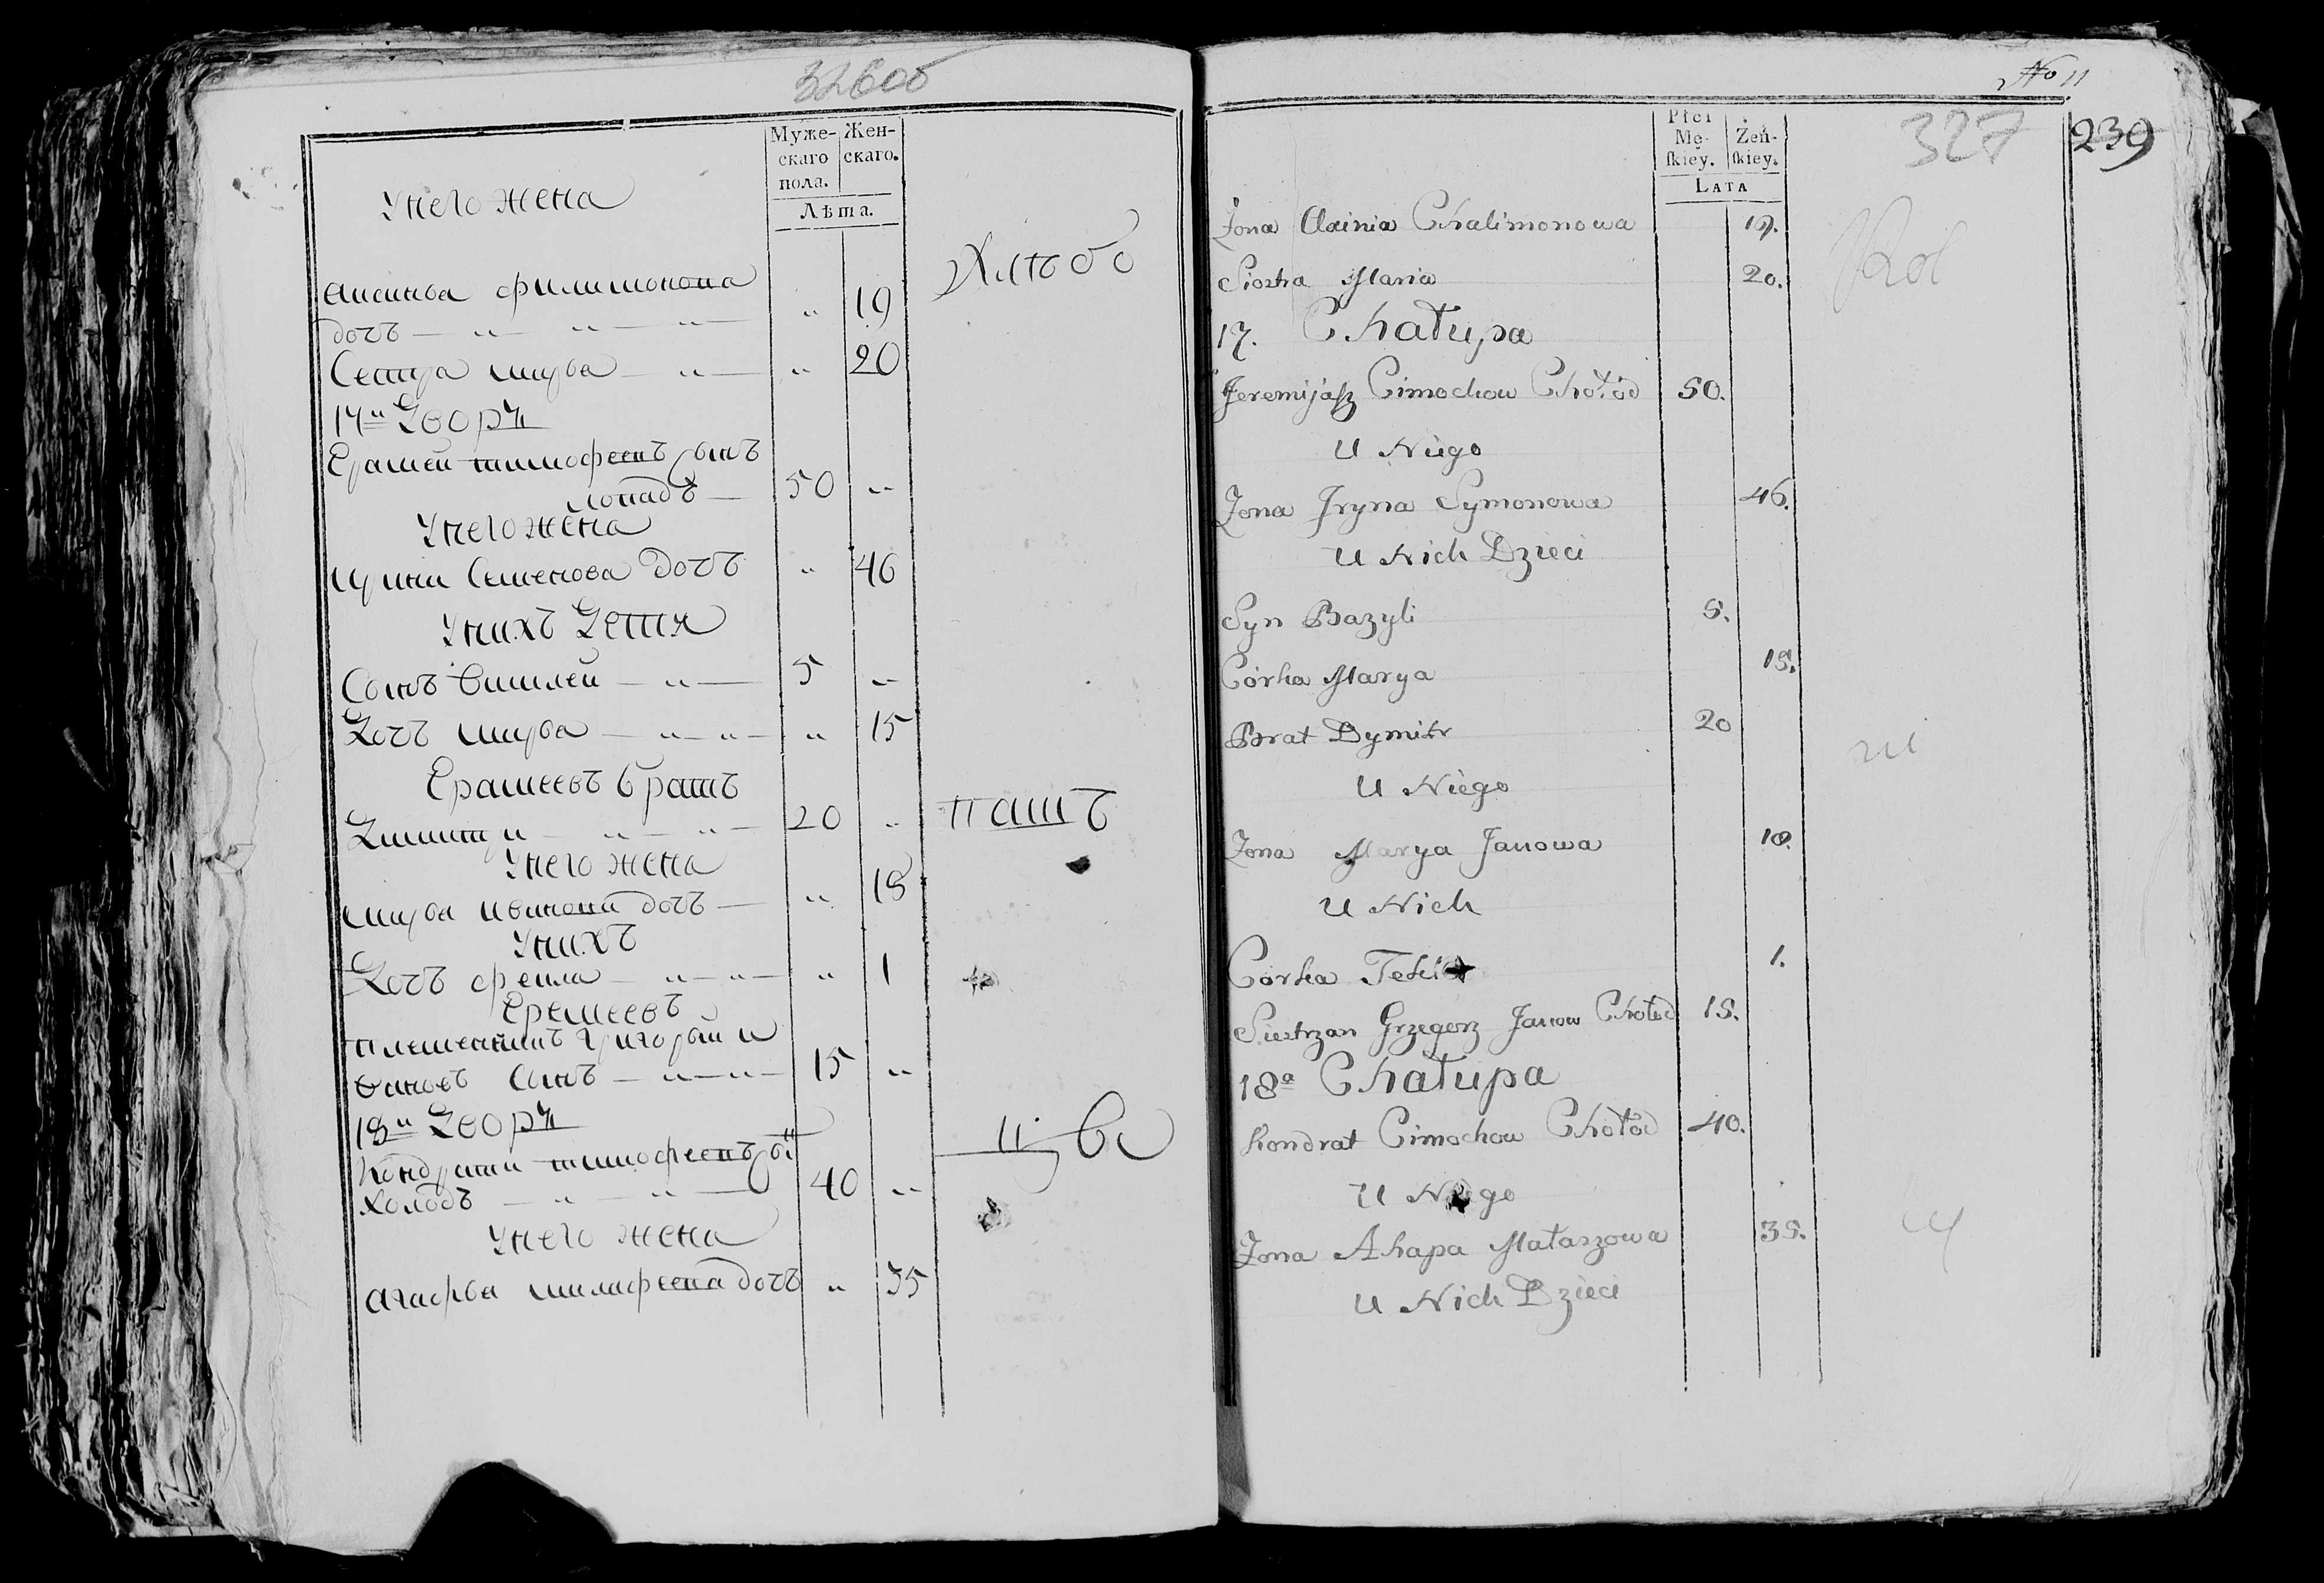 326об
Муже-
скаго
пола.
Жен-
скаго.
Лѣта.
Унего жена
филимонова 19
дочъ
Сестра марья 20
17й Дворъ
Ерамей тимофеевъ сынъ
холадъ 50
Унего жена
ирина Семенова дочъ 46
Унихъ Дети
Сынъ василей 5
Дочъ марья 15
Ерамеевъ братъ
Дмитри 20
Унего жена
марья иванова дочъ 18
Унихъ
Дочъ фекла 1
Ерамеевъ
племенникъ григорий и
вановъ Сынъ 15
18й Дворъ
Кондратий тимофеевъ сы
холодъ 40
Унего жена
агафья дочъ 35
No 11
327
239
Płci
Mę-
ſkiey.
Żeń-
ſkiey.
Lata
Żona Axinia Chalimonowa 19.
Siostra Maria 20.
17. Chałupa
Jeremijaſz Cimochow Chołod 50.
U Niego
Żona Iryna Symonowa 46.
U Nich Dzieci
Syn Bazyli 5.
Córka Marya 15.
Brat Dymitr 20
U Niego
Żona Marya Janowa 18.
U Nich
Córka Tekla 1.
Siestrzan Grzegorz Janow Chołod 15.
18a Chałupa
Kondrat Cimochow Chołod 40.
U Niego
Żona Ahapa Mataszowa 35.
U Nich Dzieci